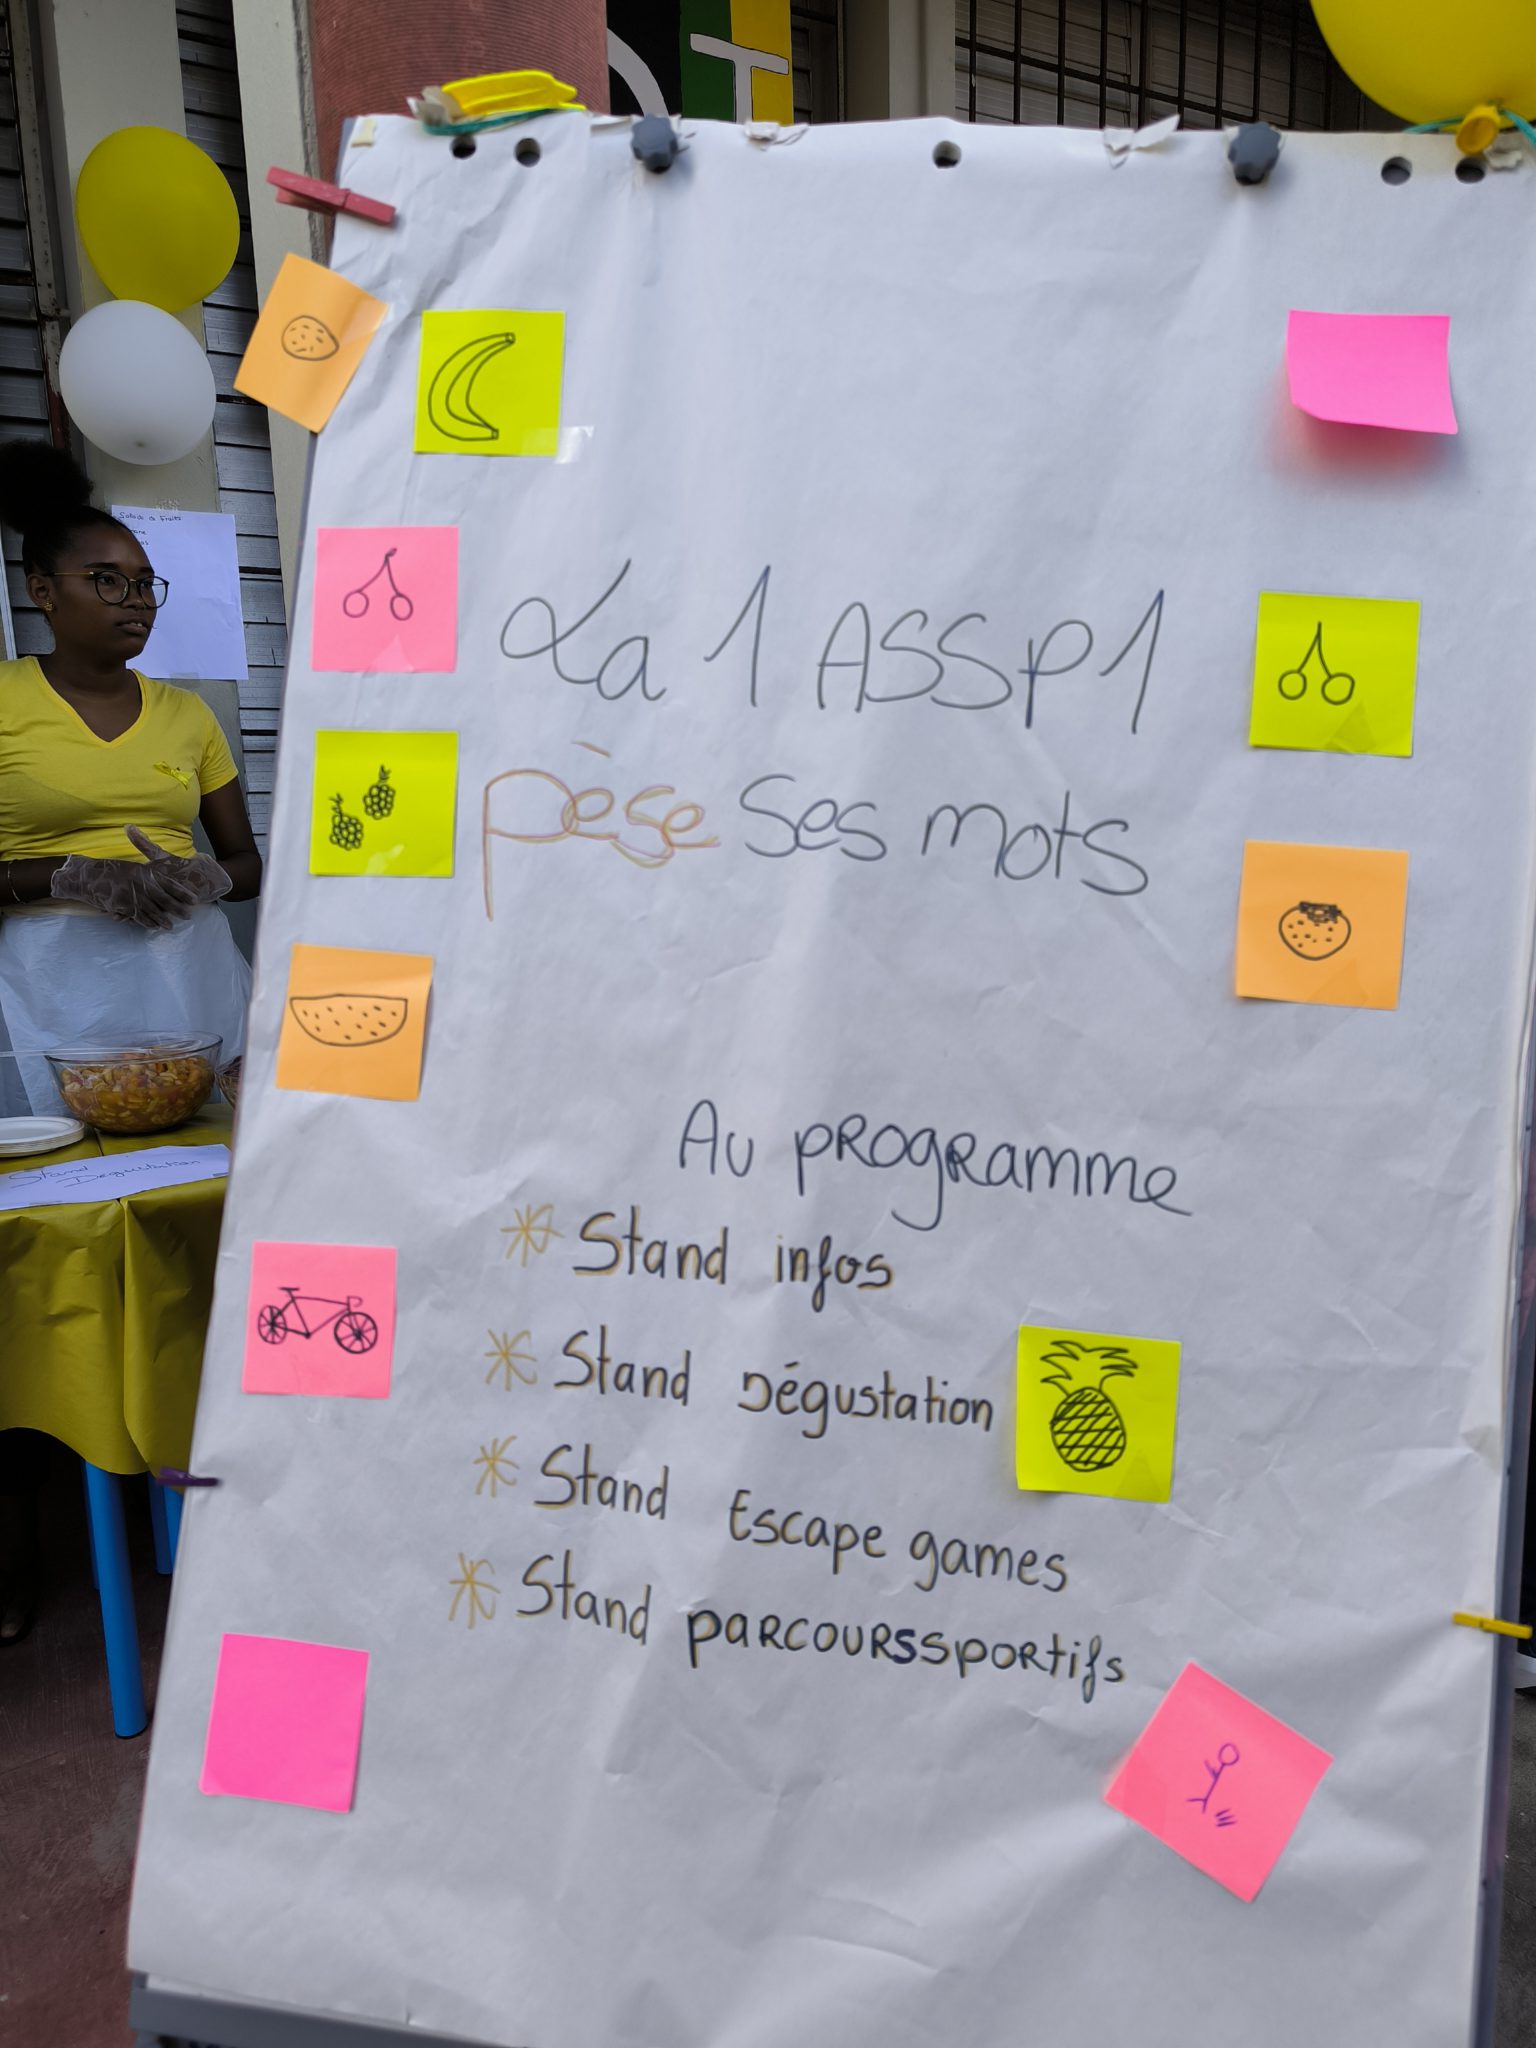 T
Salade de Fruits
La 1 ASSP1
pèse ses mots
Au programme
* Stand infos
* Stand Dégustation
* Stand Escape games
* Stand parcourssportifs
Stand
Degustation